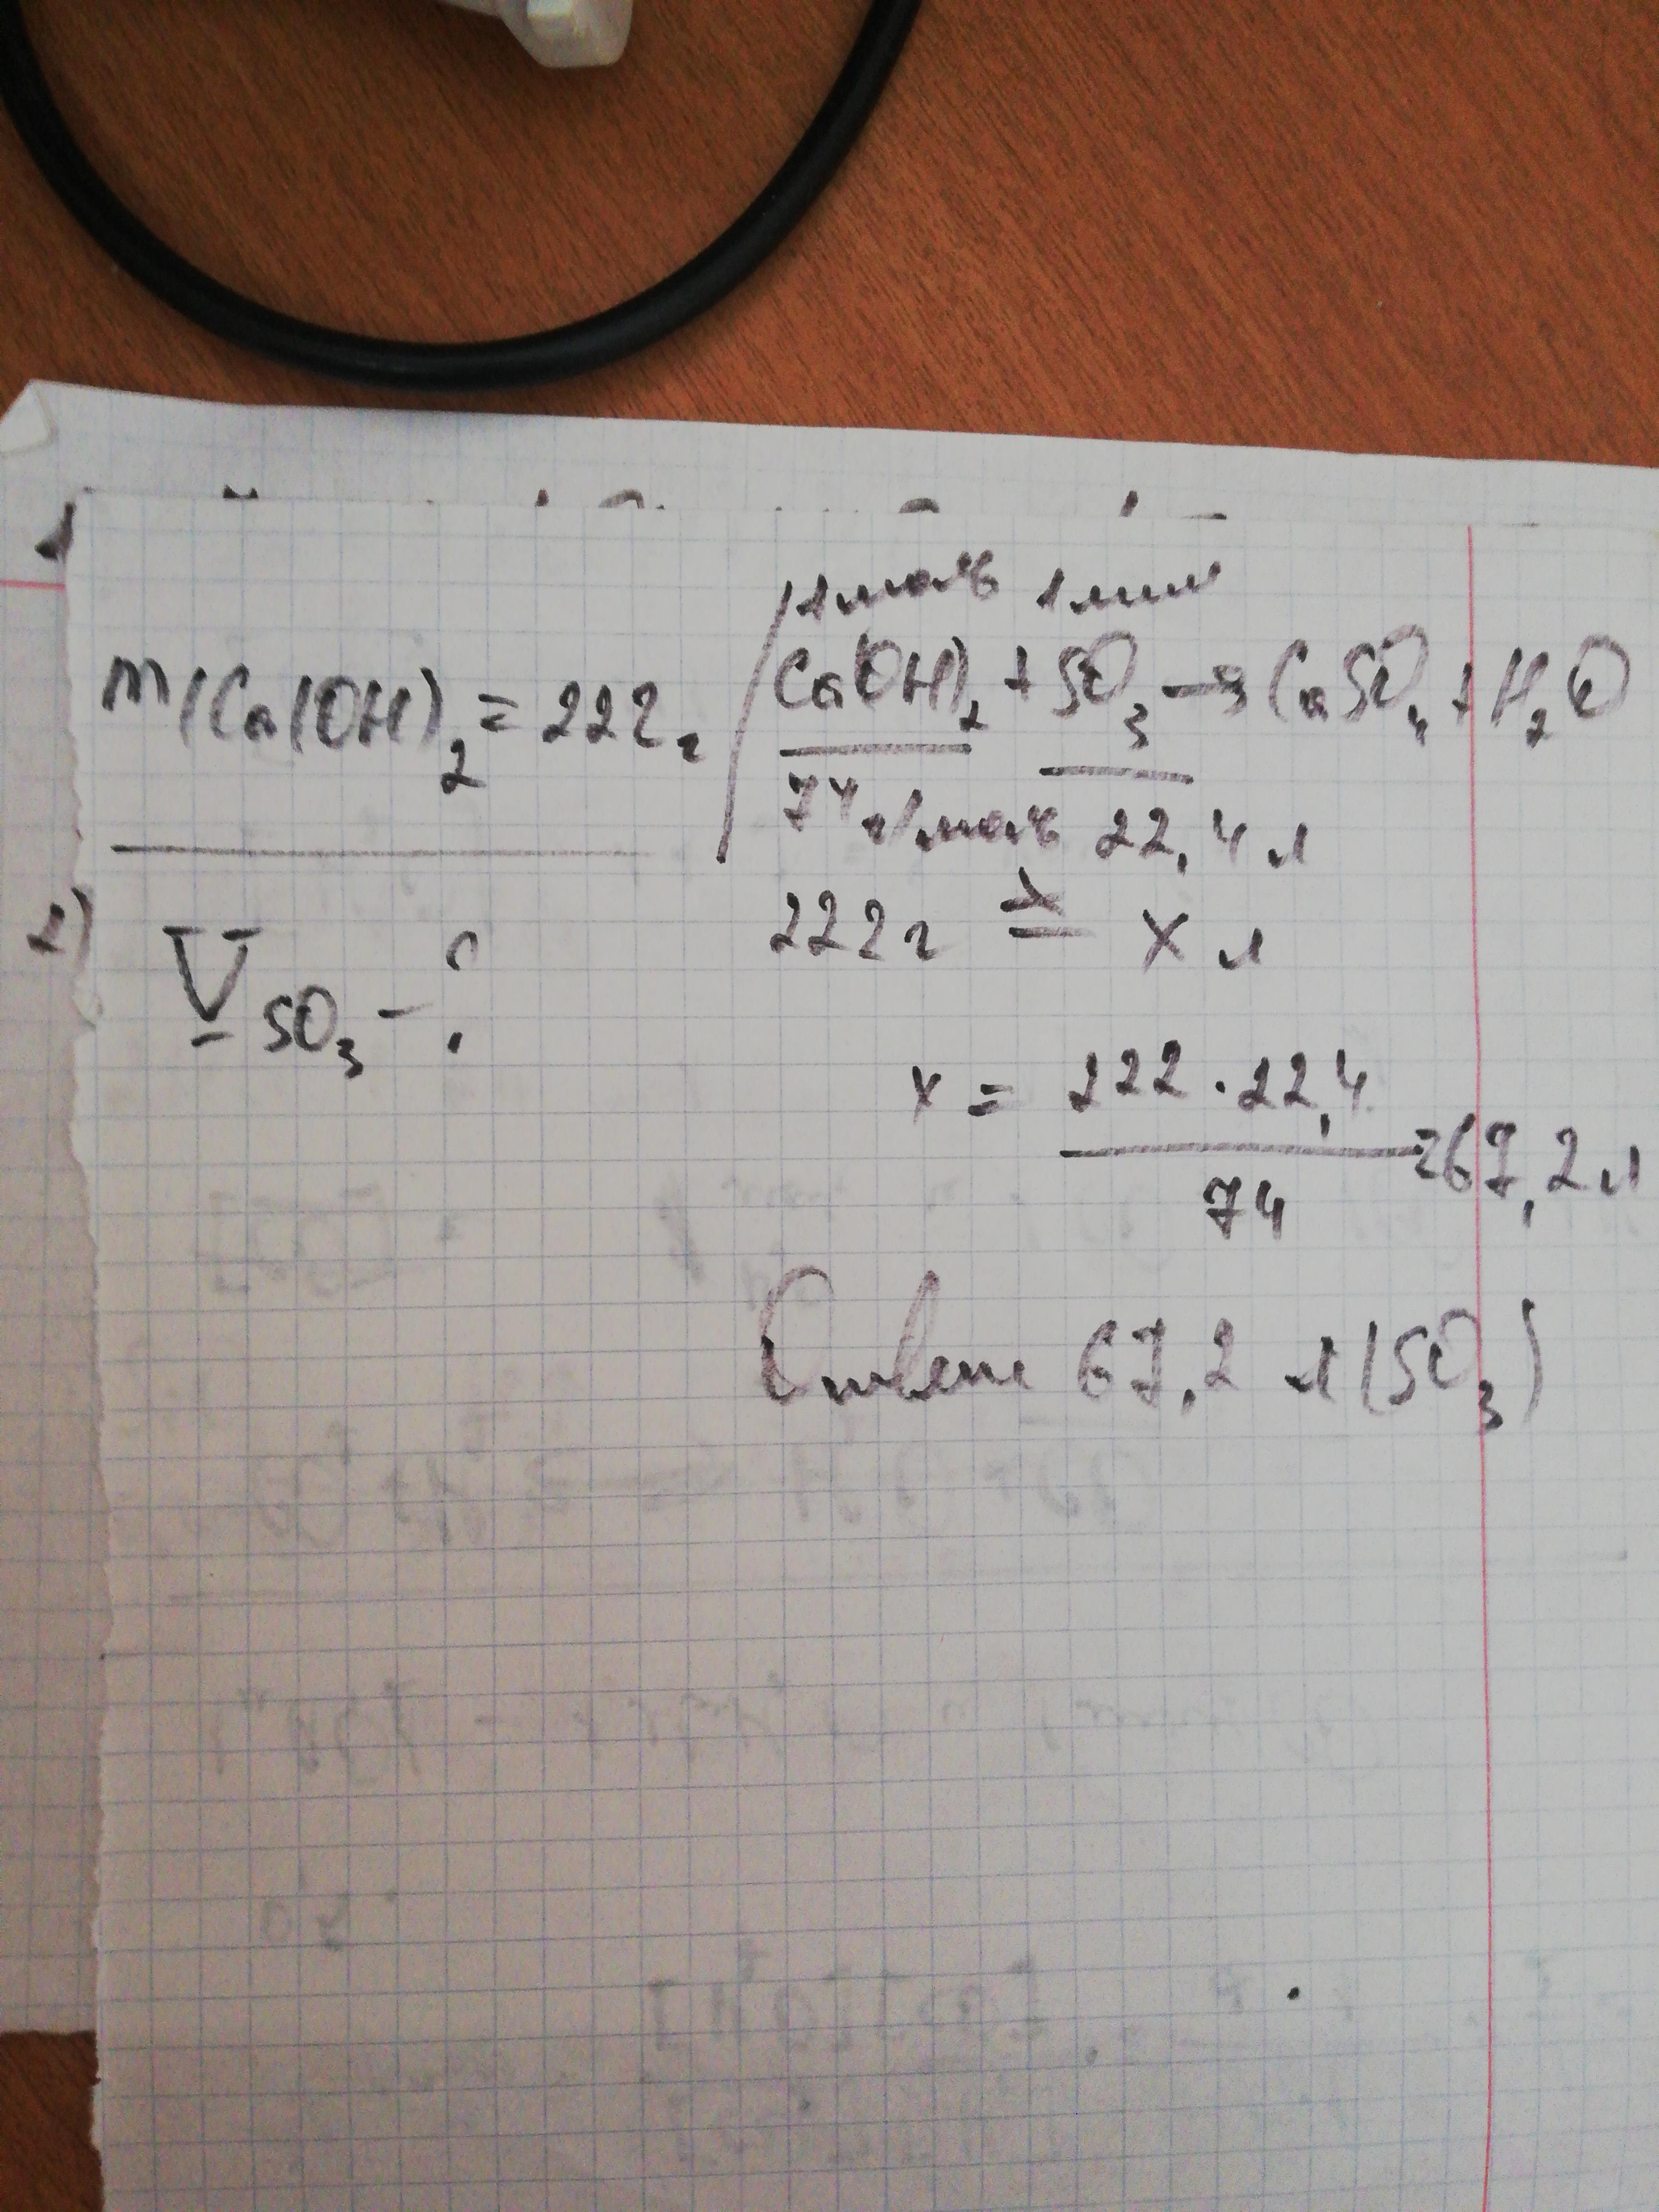 1 моль 1 моль
m(Ca(OH)₂ = 222 г
Ca(OH)₂ + SO₃ → CaSO₄ + H₂O
74 г/моль 22,4 л
222 г = x л
2)
V SO₃ - ?
x = 222 · 22,4
74
= 67,2 л
Ответ 67,2 л (SO₃)